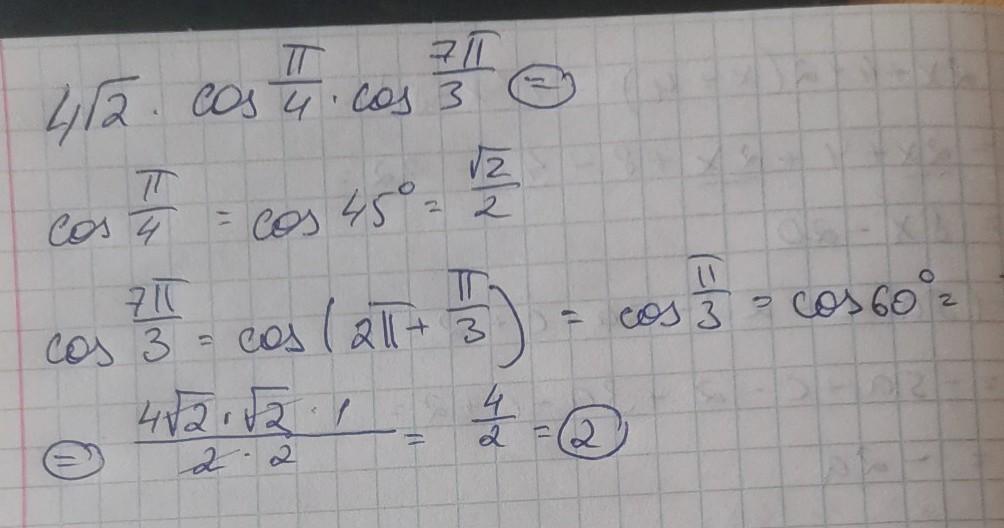 4√2 · cos π/4 · cos 7π/3 ⊜
cos π/4 = cos 45° = √2/2
cos 7π/3 = cos (2π + π/3) = cos π/3 = cos 60° =
⊜ (4√2 · √2 · 1)/(2 · 2) = 4/2 = 2